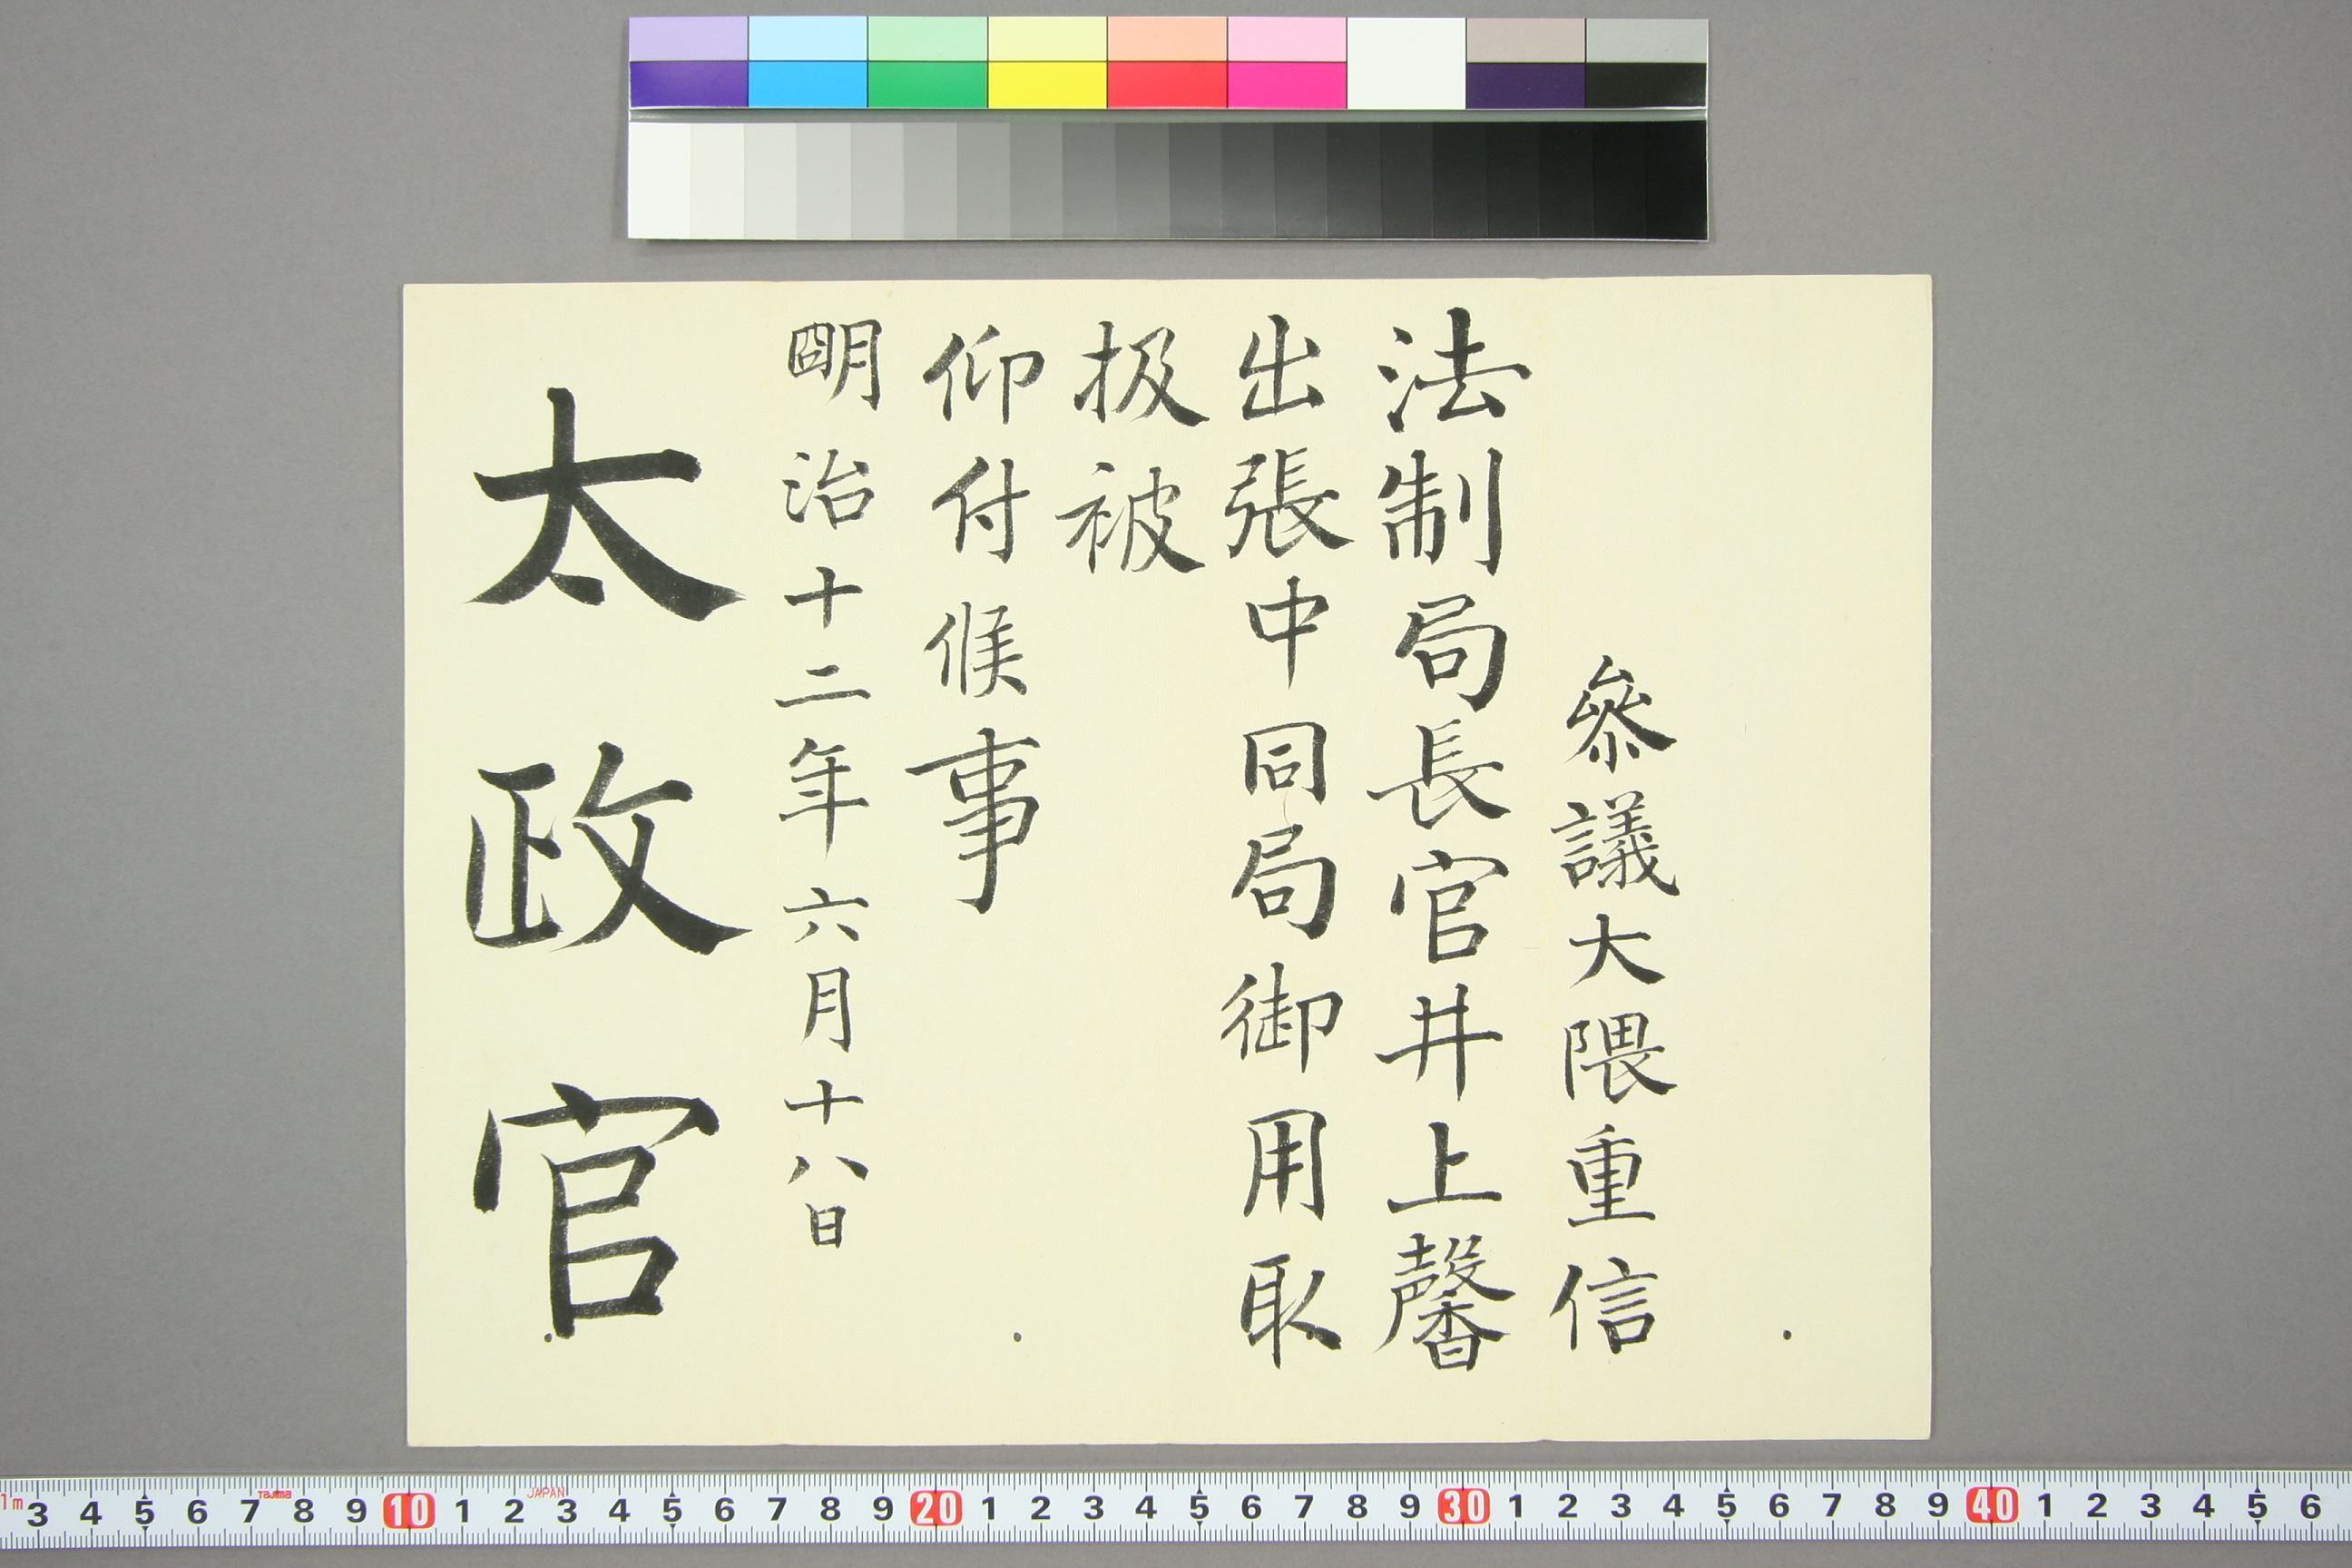 參議大隈重信
法制局長官井上馨
出張中同局御用取
扱被
仰付候事
明治十二年六月十八日
太政官
1m 3 4 5 6 7 8 9 10 1 2 3 4 5 6 7 8 9 20 1 2 3 4 5 6 7 8 9 30 1 2 3 4 5 6 7 8 9 40 1 2 3 4 5 6
Tajima JAPAN